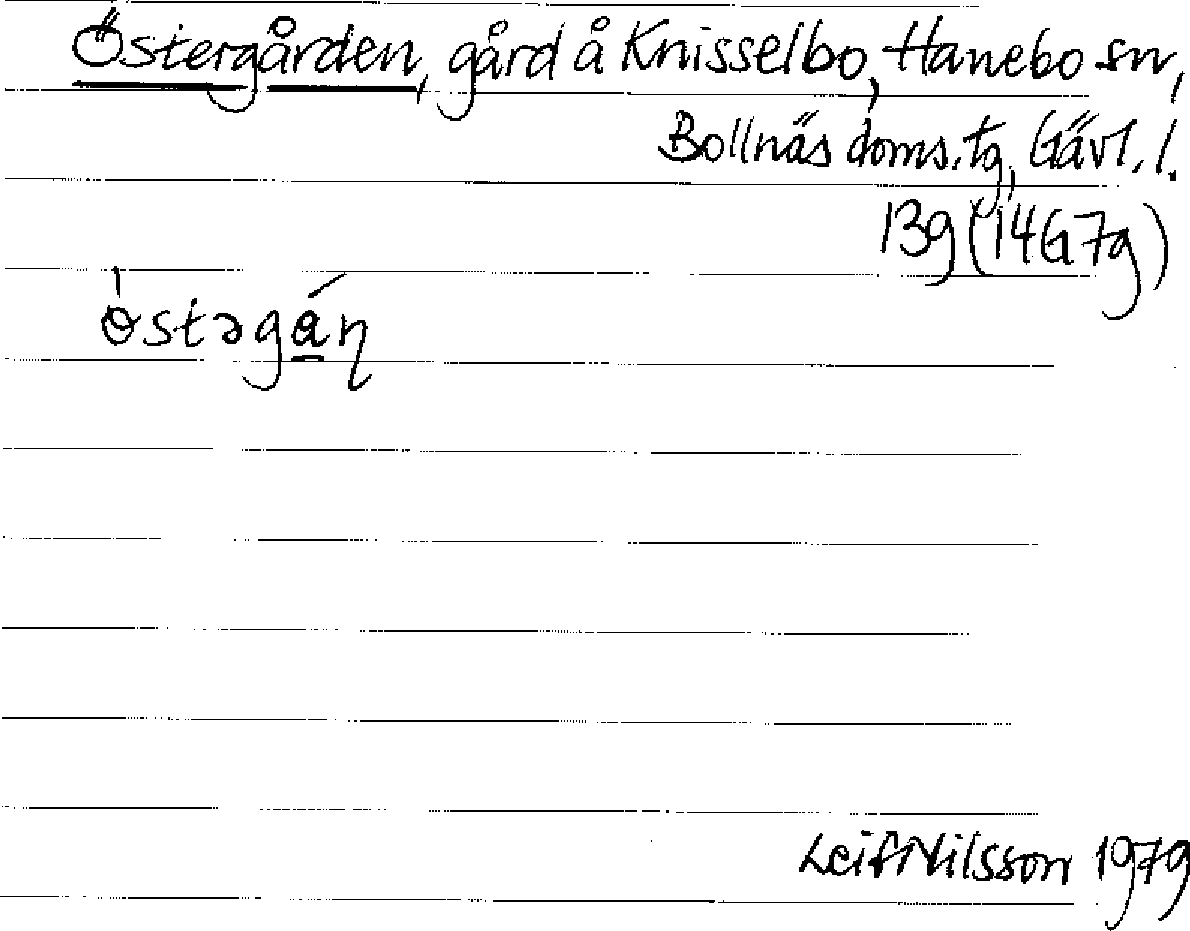 Östergården, gård å Knisselbo, Hanebo sn,
Bollnäs doms. tg, Gävl. l.
13g (14G7g)
ɵ̀stəgά̲ɳ
Leif Nilsson 1979